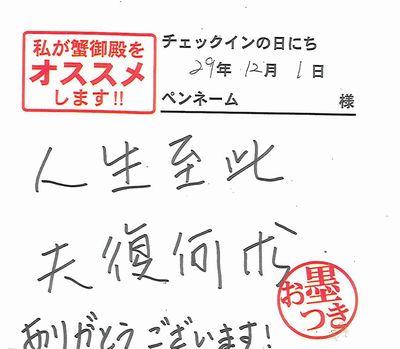 私が蟹御殿を
オススメ
します!!
チェックインの日にち
29年 12月 1日
ペンネーム 様
人生至此
夫復何求
お墨つき
ありがとうございます!